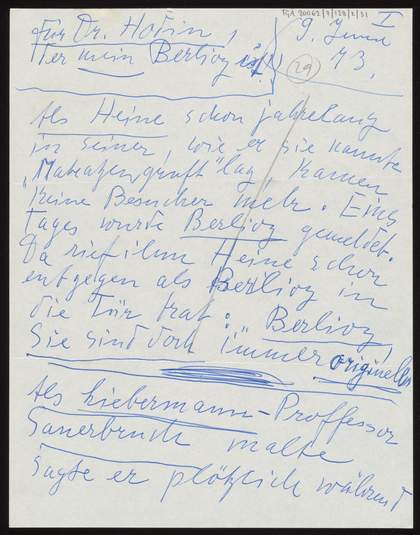 I
für Dr. Hofin,
der mein Berlioz ist!
9. Juni
73,
29
Als Heine schon jahrelang
in seiner, wie er sie nannte
„Matratzengruft" lag, kamen
keine Besucher mehr. Eines
Tages wurde Berlioz gemeldet.
Da rief ihm Heine schon
entgegen als Berlioz in
die Tür trat: Berlioz!
Sie sind doch immer originell
Als Liebermann - Proffessor
Sauerbruch malte
sagte er plötzlich während